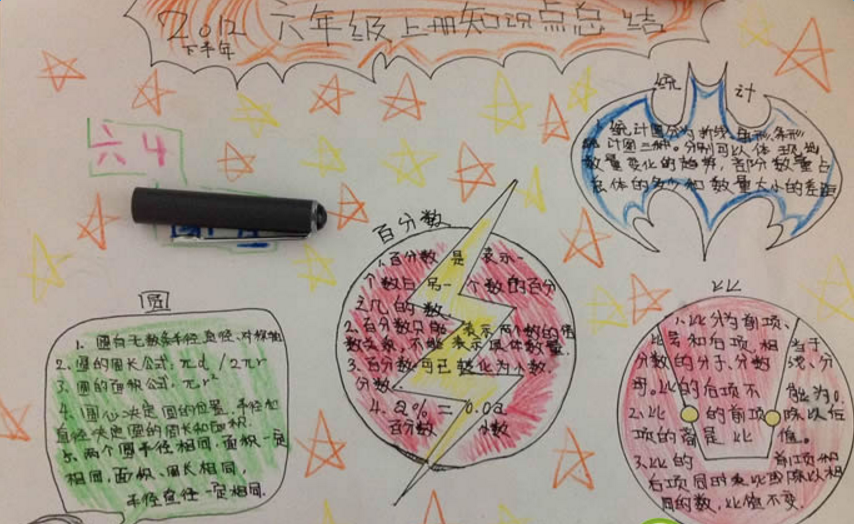 2012
下半年
六年级上册知识点总结
六4
统计
统计图分为折线、扇形、条形
统计图三种。分别可以体现出
数量变化的趋势,部分数量占
总体的多少和数量大小的差距
百分数
1.百分数是表示一
个数占另一个数的百分
之几的数。
2.百分数只能表示两个数的倍
数关系,不能表示具体数量.
3.百分数可已转化为小数.
分数.
4.a%=0.0a
百分数 小数
圆
1、圆有无数条半径直径、对称轴
2、圆的周长公式:πd/2πr
3、圆的面积公式:πr²
4、圆心决定圆的位置.半径和
直径决定圆的周长和面积.
5、两个圆半径相同,面积一定
相同,面积、周长相同,
半径直径一定相同.
比
1.比分为前项、
比号和后项.相当于
分数的分子、分数线、分
母。比的后项不能为0.
2.比的前项除以后
项的商是比值。
3.比的前项和
后项同时乘比或除以相
同的数,比值不变.